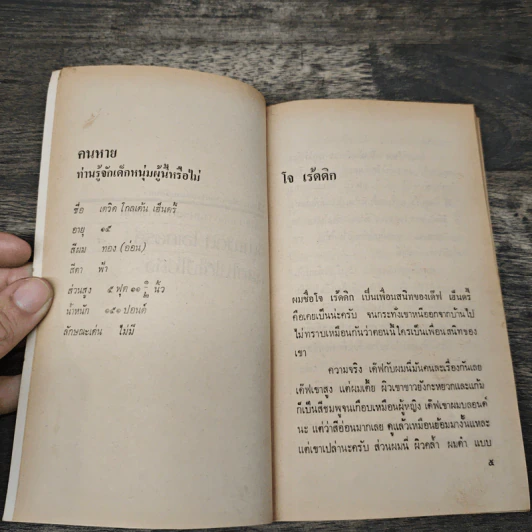 คนหาย
ท่านรู้จักเด็กหนุ่มผู้นี้หรือไม่
ชื่อ เดวิด โกลเด้น เฮ็นดรี้
อายุ ๑๕
สีผม ทอง (อ่อน)
สีตา ฟ้า
ส่วนสูง ๕ ฟุต ๑๑ ๑/๒ นิ้ว
น้ำหนัก ๑๕๑ ปอนด์
ลักษณะเด่น ไม่มี
โจ เร้ดดิก
ผมชื่อโจ เร้ดดิก เป็นเพื่อนสนิทของเดฟ เฮ็นดรี้
คือเคยเป็นน่ะครับ จนกระทั่งเขาหนีออกจากบ้านไป
ไม่ทราบเหมือนกันว่าตอนนี้ใครเป็นเพื่อนสนิทของ
เขา
ความจริง เดฟกับผมนี่มันคนละเรื่องกันเลย
เดฟเขาสูง แต่ผมเตี้ย ผิวเขาขาวยังกะหยวกและแก้ม
ก็เป็นสีชมพูจนเกือบเหมือนผู้หญิง เดฟเขาผมบลอนด์
นะ แต่ว่าสีอ่อนมากเลย ดูแล้วเหมือนย้อมมางั้นแหละ
แต่เขาเปล่านะครับ ส่วนผมนี่ ผิวคล้ำ ผมดำ แบบ
๕